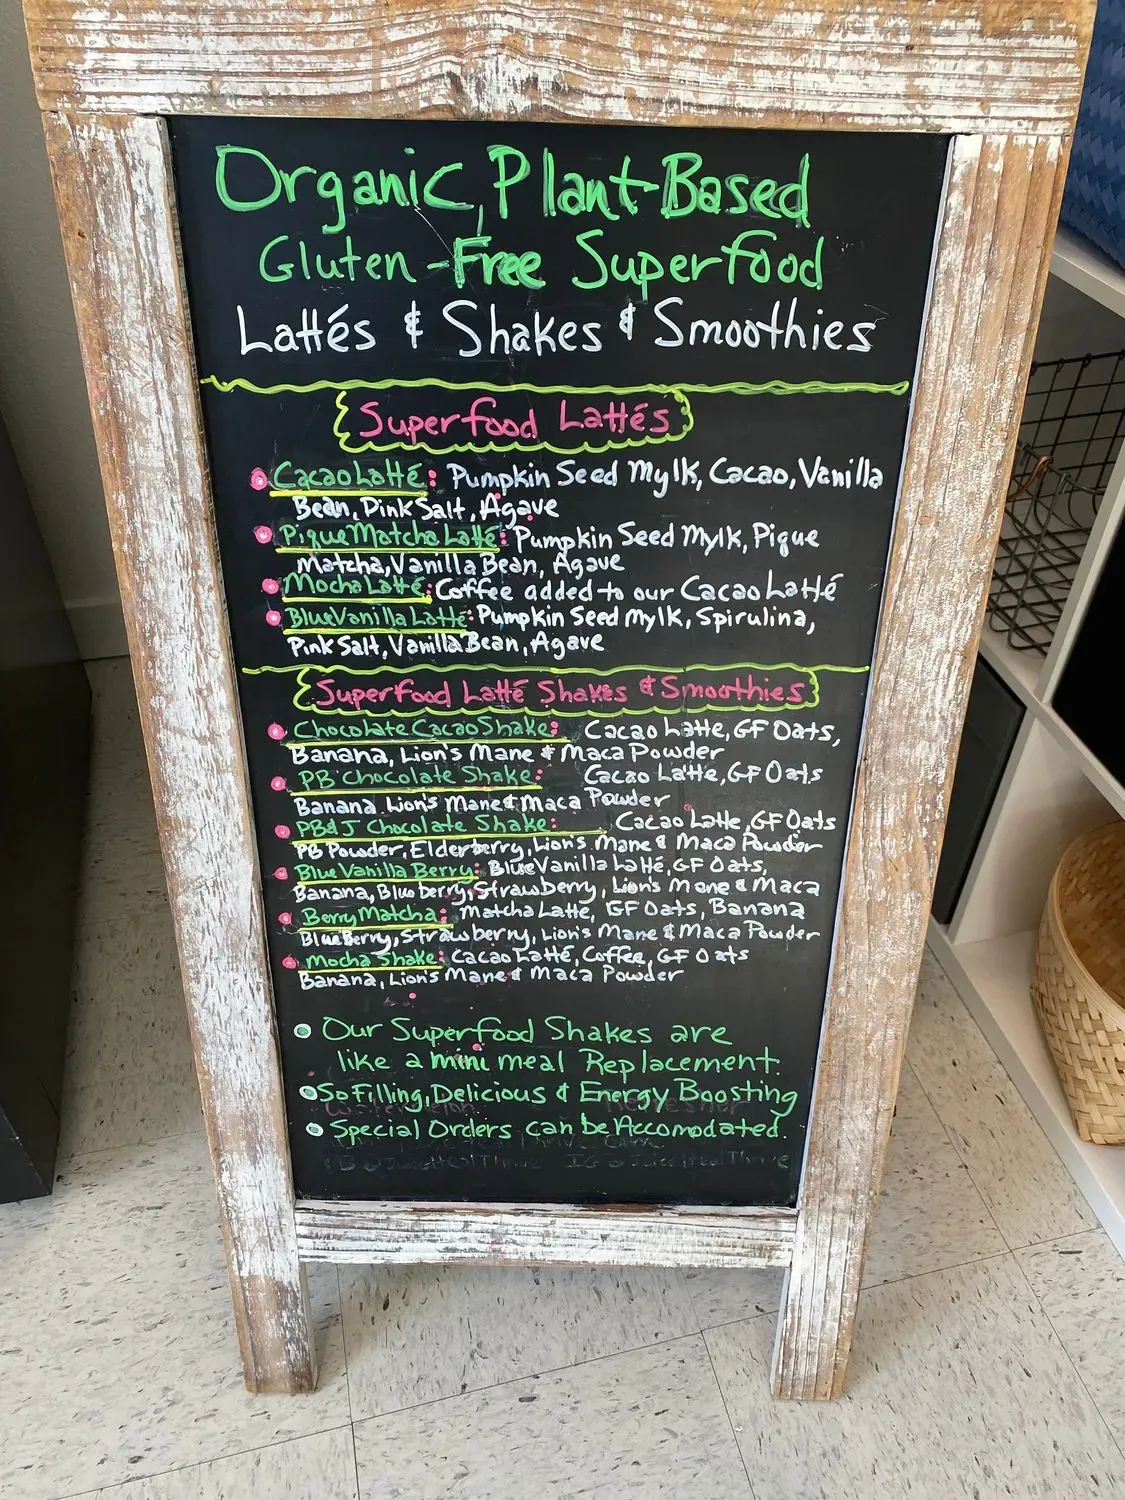 Organic, Plant-Based
Gluten-Free Superfood
Lattés & Shakes & Smoothies
Superfood Lattés
Cacao Latté: Pumpkin Seed Mylk, Cacao, Vanilla
Bean, Pink Salt, Agave
Pique Matcha Latté: Pumpkin Seed Mylk, Pique
Matcha, Vanilla Bean, Agave
Mocha Latté: Coffee added to our Cacao Latté
Blue Vanilla Latté: Pumpkin Seed Mylk, Spirulina,
Pink Salt, Vanilla Bean, Agave
Superfood Latté Shakes & Smoothies
Chocolate Cacao Shake: Cacao Latte, GF Oats,
Banana, Lion's Mane & Maca Powder
PB Chocolate Shake: Cacao Latte, GF Oats
Banana Lion's Mane & Maca Powder
PB&J Chocolate Shake: Cacao Latte, GF Oats
PB Powder, Elderberry, Lion's Mane & Maca Powder
Blue Vanilla Berry: Blue Vanilla Latté, GF Oats,
Banana, Blueberry, Strawberry, Lion's Mane & Maca
Berry Matcha: Matcha Latté, GF Oats, Banana
BlueBerry, Strawberry, Lion's Mane & Maca Powder
Mocha Shake: Cacao Latté, Coffee, GF Oats
Banana, Lion's Mane & Maca Powder
Our Superfood Shakes are
like a mini meal Replacement.
So Filling, Delicious & Energy Boosting
Special Orders can be Accomodated.